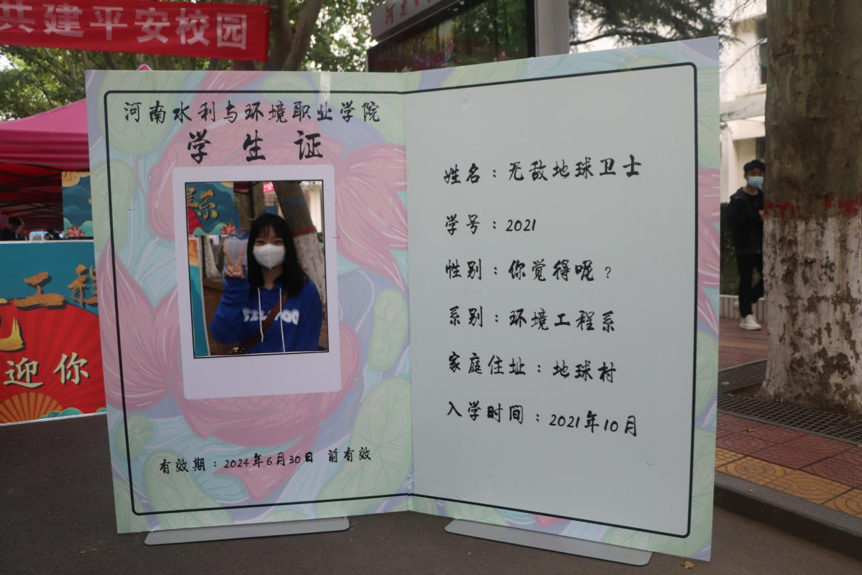 共建平安校园
河南水利与环境职业学院
学生证
有效期：2024年6月30日 前有效
姓名：无敌地球卫士
学号：2021
性别：你觉得呢？
系别：环境工程系
家庭住址：地球村
入学时间：2021年10月
工程
迎你
系